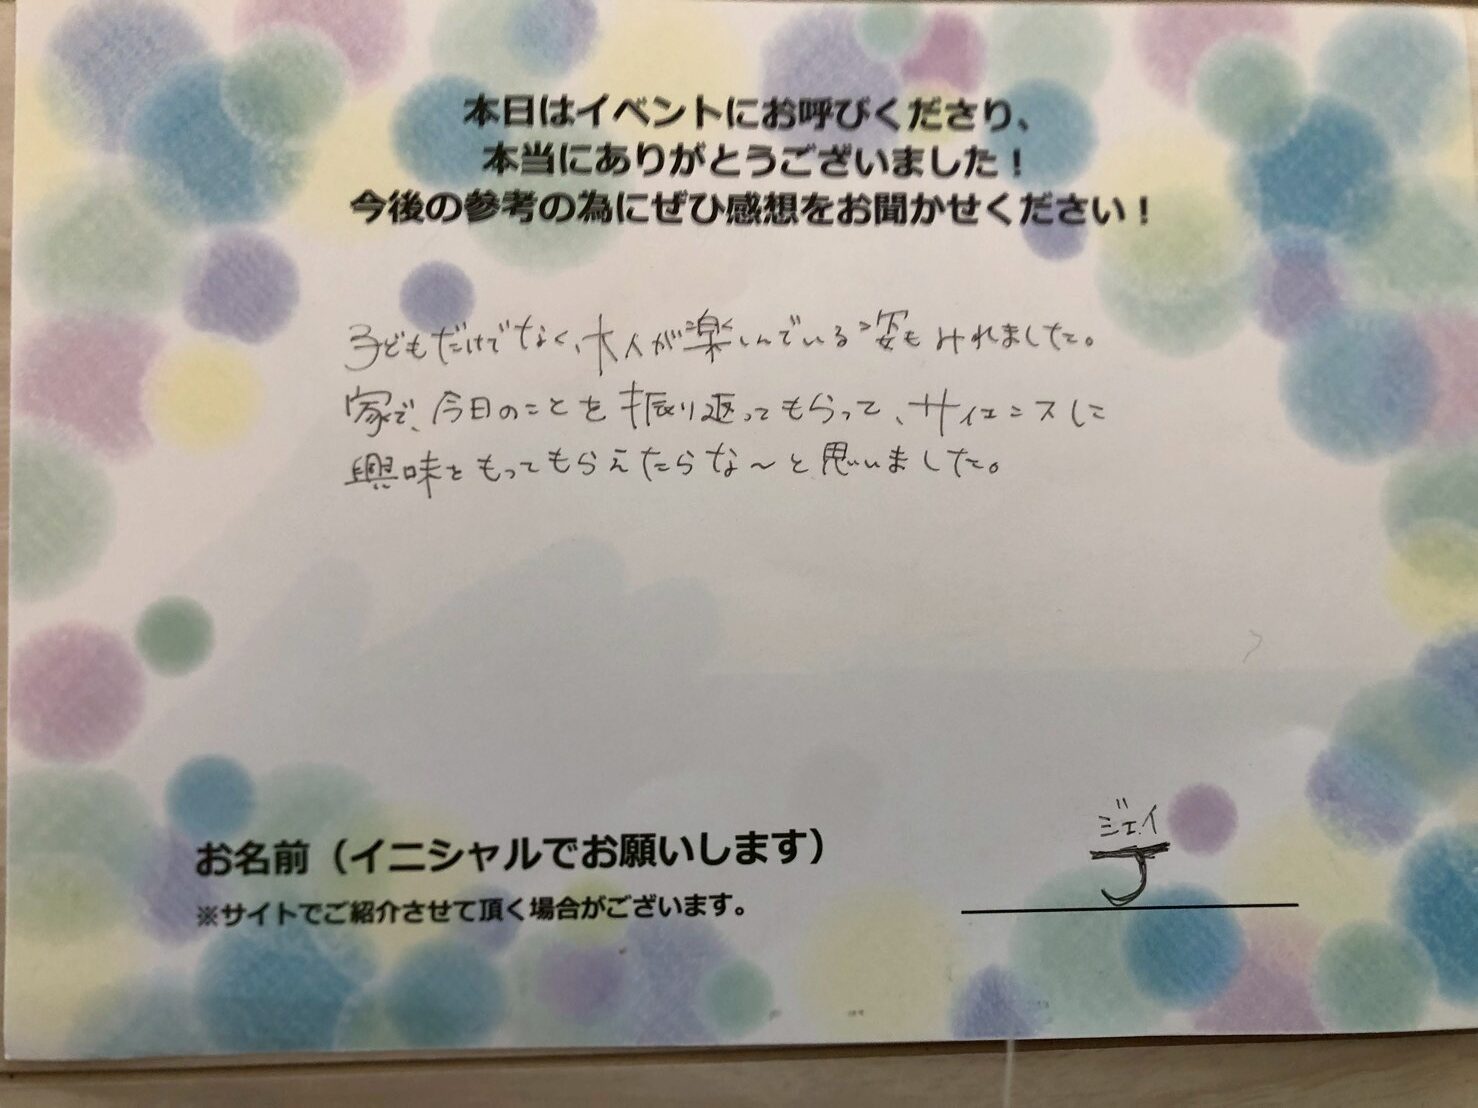 本日はイベントにお呼びくださり、
本当にありがとうございました！
今後の参考の為にぜひ感想をお聞かせください！
子どもだけでなく、大人が楽しんでいる姿もみれました。
家で、今日のことを振り返ってもらって、サイエンスに
興味をもってもらえたらな〜と思いました。
お名前（イニシャルでお願いします）
※サイトでご紹介させて頂く場合がございます。
ジェイ
J